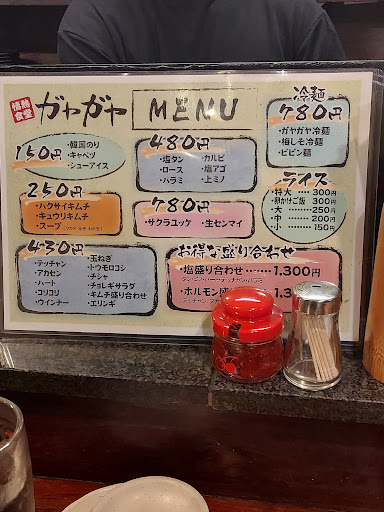 情熱
食堂
ガヤガヤ
MENU
150円
・韓国のり
・キャベツ
・シューアイス
250円
・ハクサイキムチ
・キュウリキムチ
・スープ
430円
・テッチャン
・アカセン
・ハート
・コリコリ
・ウインナー
・玉ねぎ
・トウモロコシ
・チシャ
・チョレギサラダ
・キムチ盛り合わせ
・エリンギ
480円
・塩タン
・ロース
・ハラミ
・カルビ
・塩アゴ
・上ミノ
780円
・サクラユッケ
・生センマイ
お得な盛り合わせ
・塩盛り合わせ………1,300円
・ホルモン盛
冷麺
780円
・ガヤガヤ冷麺
・梅しそ冷麺
・ビビン麺
ライス
・特大 … 300円
・卵かけご飯 300円
・大 …… 250円
・中 …… 200円
・小 …… 150円